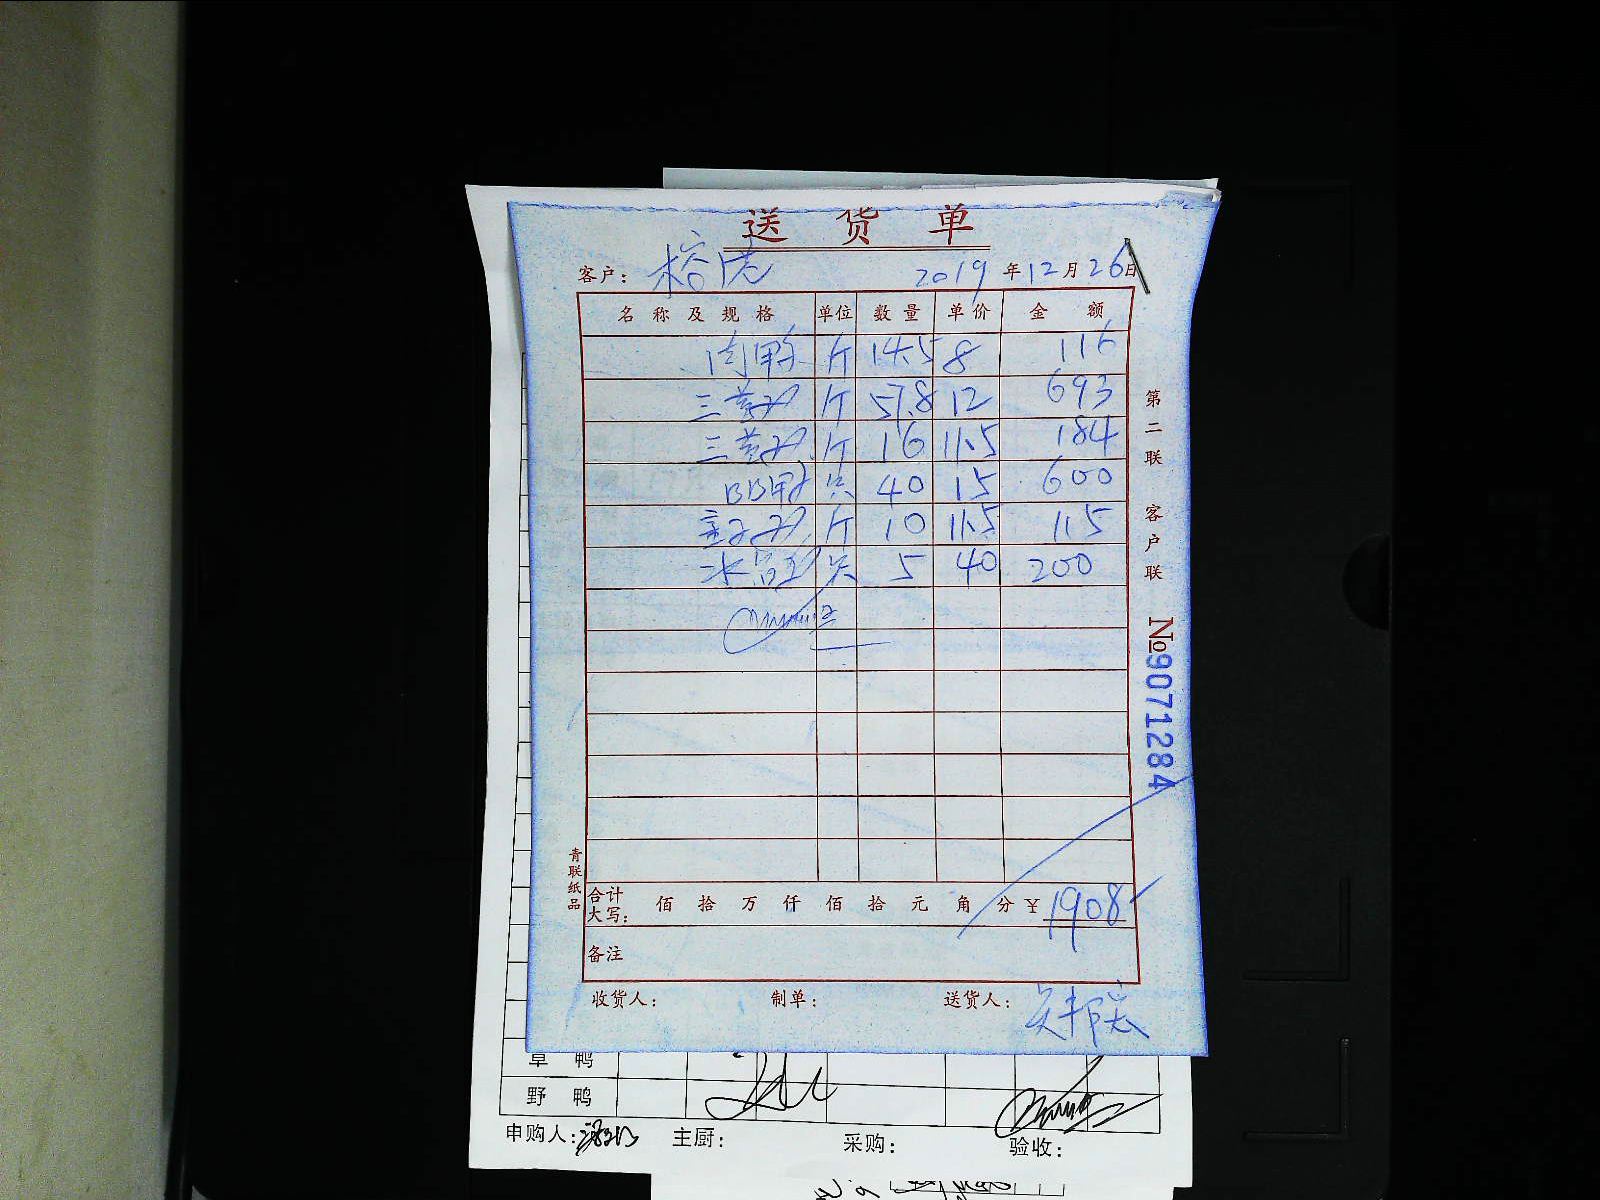 送货单
客户: 2019年12月26日
名称及规格 单位 数量 单价 金额
肉鸭 斤 14.5 8 116
三黄 斤 57.8 12 693
三黄 斤 16 11.5 184
BB鸭 只 40 15 600
斤 10 11.5 115
5 40 200
合计大写: 佰拾万仟佰拾元角分¥1908
备注
收货人: 制单: 送货人:
第二联 客户联
№9071284
青联纸品
草鸭
野鸭
申购人: 主厨: 采购: 验收: